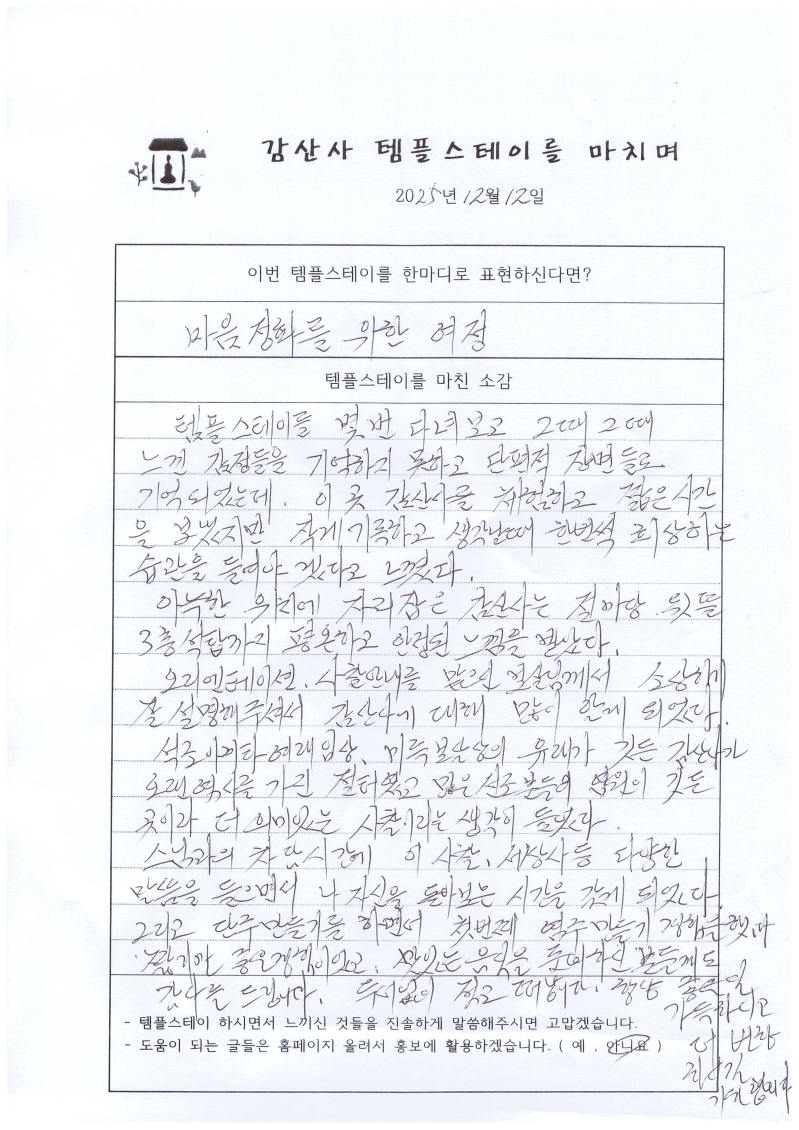 감산사 템플스테이를 마치며
2025년 12월 12일
이번 템플스테이를 한마디로 표현하신다면?
마음정화를 위한 여정
템플스테이를 마친 소감
템플스테이를 몇번 다녀보고 그때 그때
느낀 감정들을 기억하지 못하고 단편적 장면들로
기억되었는데. 이 곳 감산사를 체험하고 짧은 시간
을 보냈지만 작게 기록하고 생각날때 한번씩 회상하는
습관을 들여야 겠다고 느꼈다.
아늑한 위치에 자리잡은 감산사는 절마당 윗뜰
3층석탑까지 평온하고 안정된 느낌을 받았다.
오리엔테이션, 사찰안내를 맡으신 보살님께서 소상하게
잘 설명해주셔서 감산사에 대해 많이 알게 되었다.
석조아미타여래입상, 미륵보살상의 유래가 깃든 감산사가
오랜역사를 가진 절터였고 많은 신도분들의 염원이 깃든
곳이라 더 의미있는 사찰이라는 생각이 들었다.
스님과의 차담시간에 이 사찰, 세상사등 다양한
말씀을 들으면서 나 자신을 돌아보는 시간을 갖게 되었다.
그리고 단주만들기를 하면서 첫번째 염주만들기 경험을 했다
짧지만 좋은경험이었고, 맛있는 음식을 준비하신 분들께도
감사를 드립니다. 떠납니다. 항상 좋은일
가득하시고
더 번창
하시길
- 템플스테이 하시면서 느끼신 것들을 진솔하게 말씀해주시면 고맙겠습니다.
- 도움이 되는 글들은 홈페이지 올려서 홍보에 활용하겠습니다. ( 예 , 아니요 )